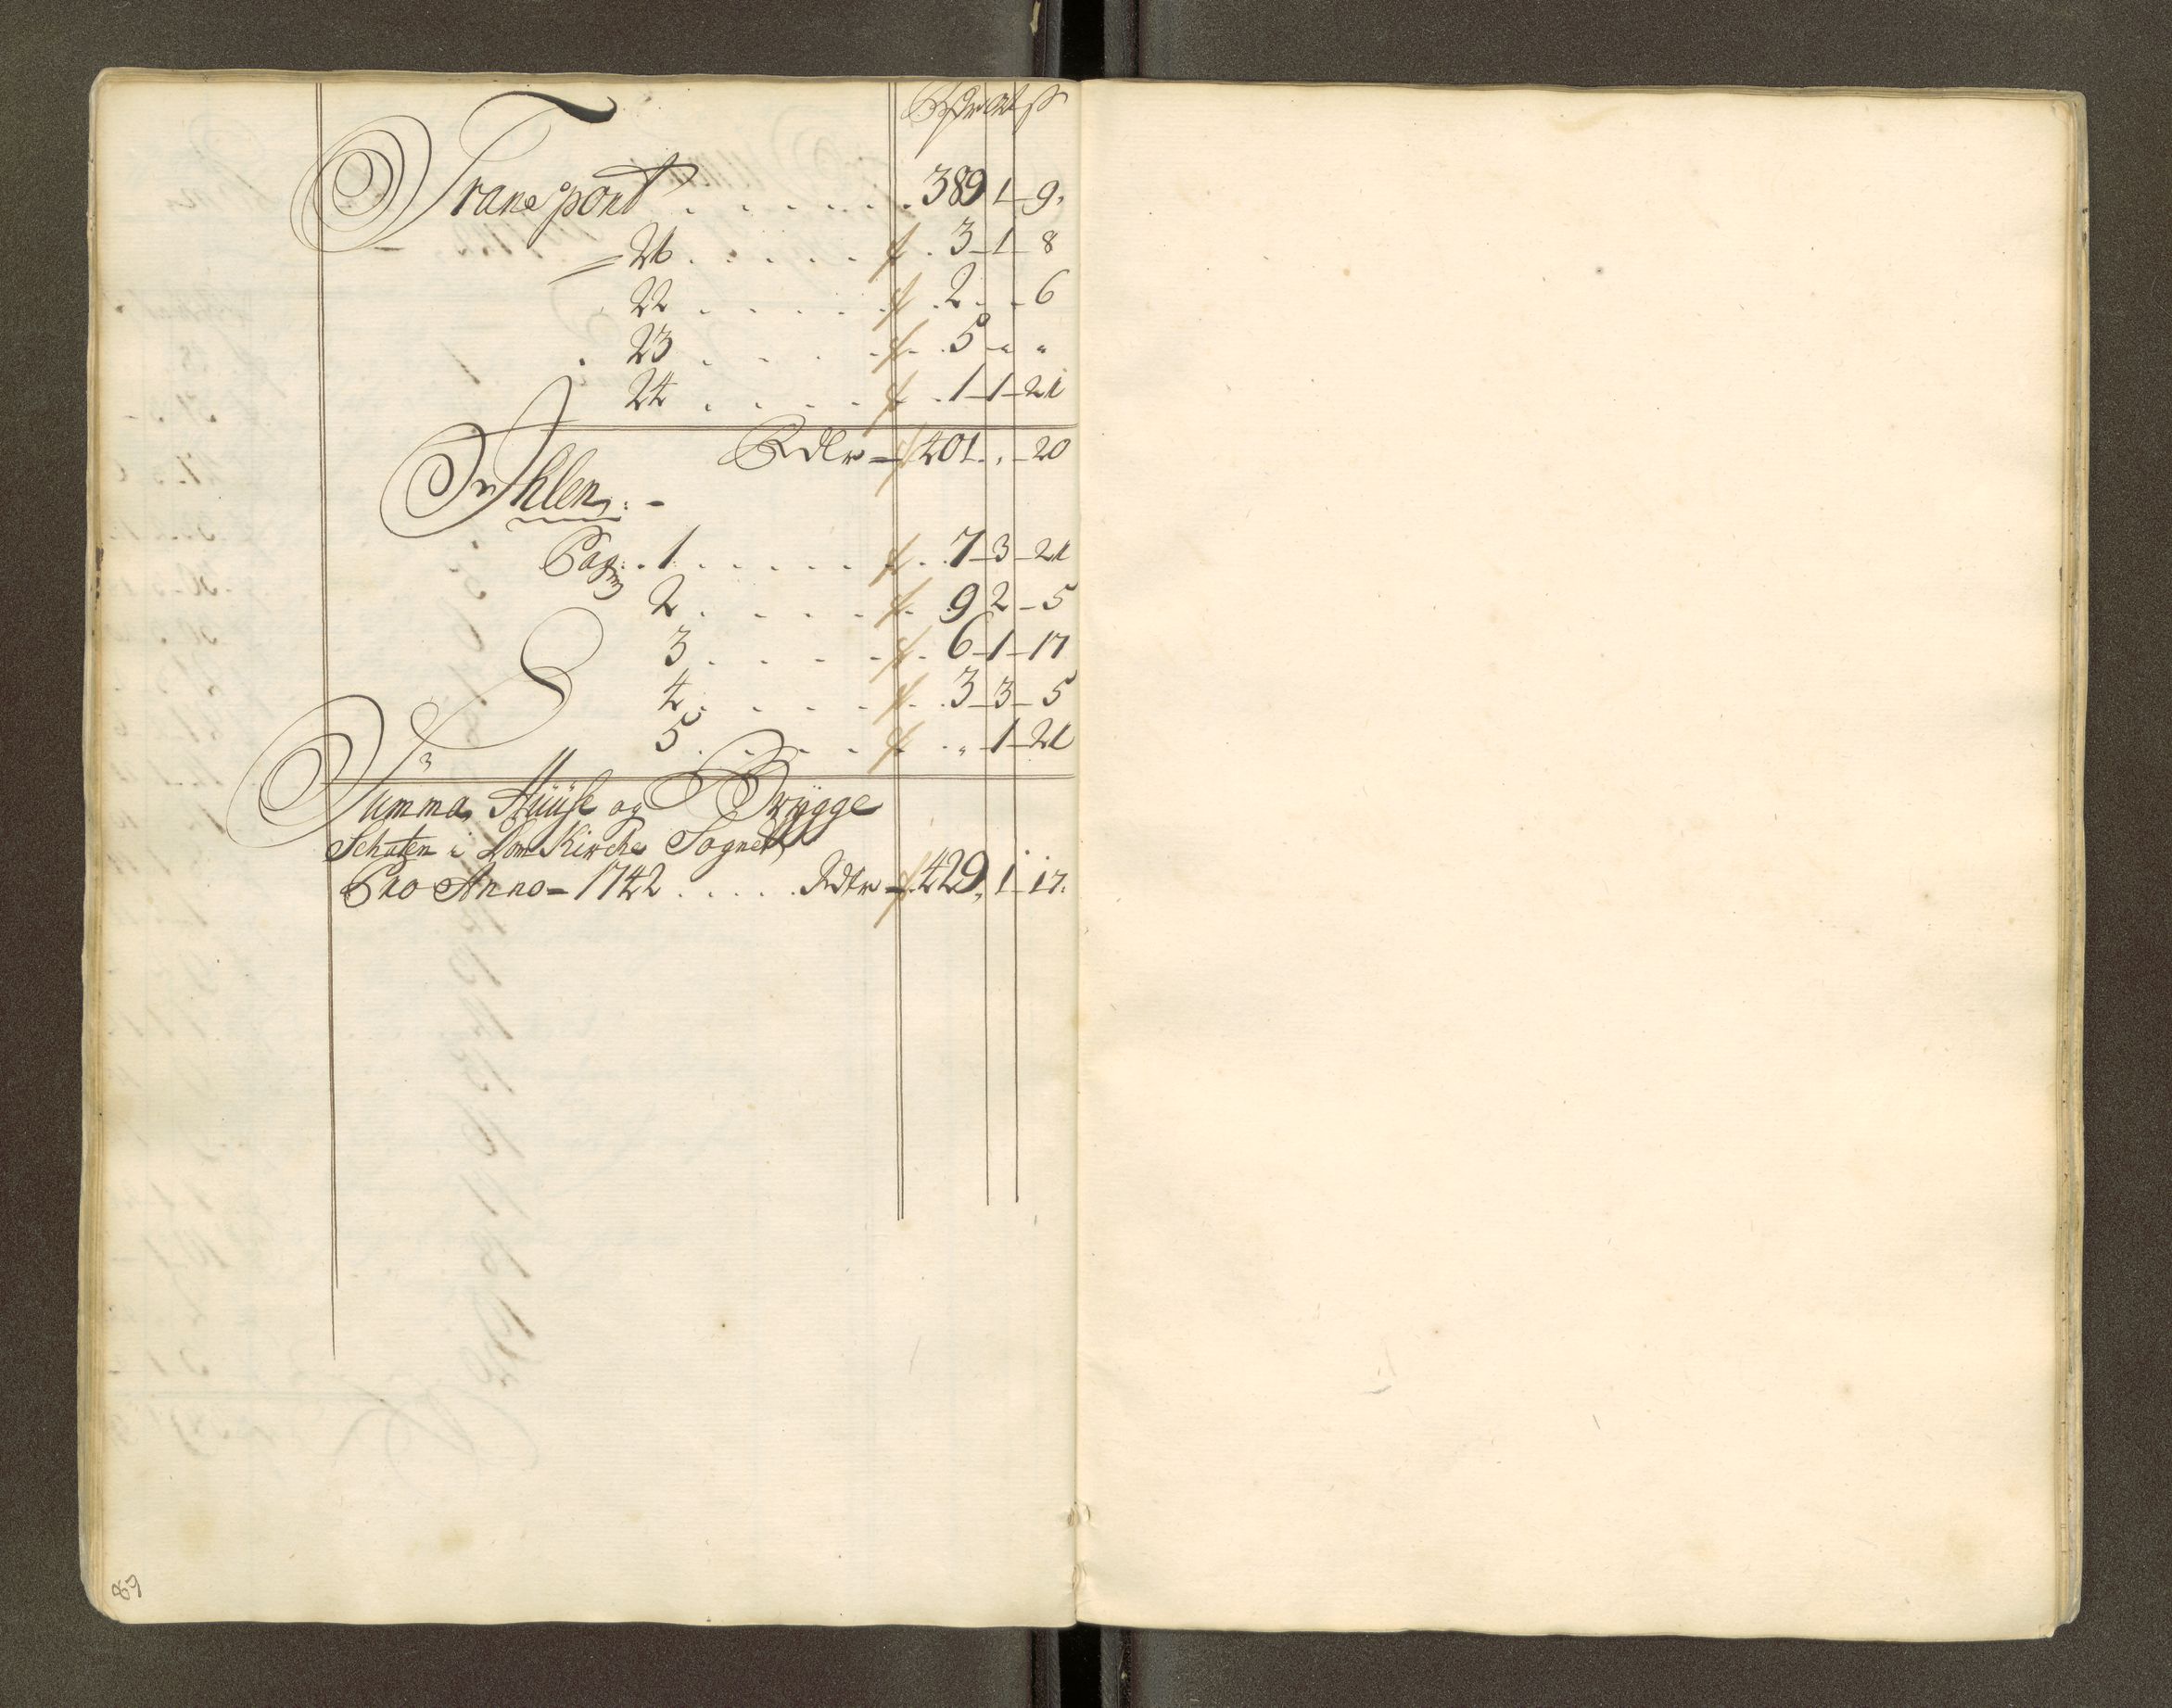 Rdr ort ß
Transport . . . . . . . 389 1 9.
21 . . . . . 3 1 8
22 . . . . . 2 . 6
23 . . . . . 5 " "
24 . . . . . 1 1 21
Rdlr 401 . 20
Ihlen:
Pag: 1 . . . . . 7 3 21
2 . . . . . 9 2 5
3 . . . . . 6 1 17
4 . . . . . 3 3 5
5 . . . . . " 1 21
Summa Huuse og Brygge
Schaten i Dom Kirche Sognet
Pro Anno 1742 . . . . . Rdlr 429 1 17.
89